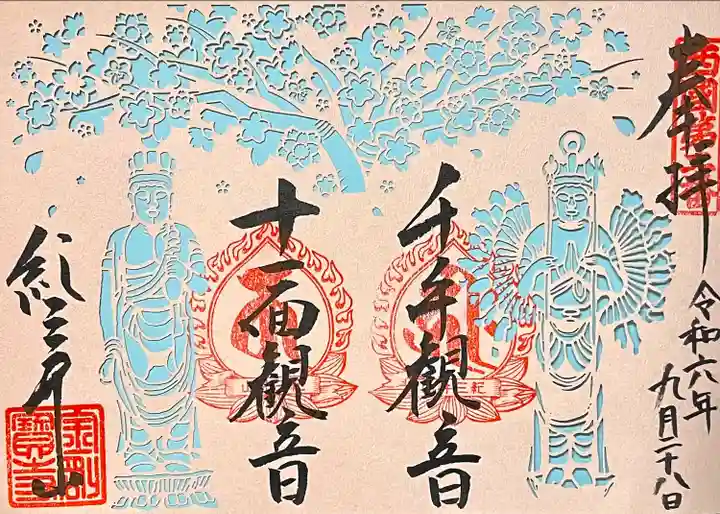 奉拝
令和六年
九月二十八日
千手観音
十一面観音
紀三井山
金剛
寶寺